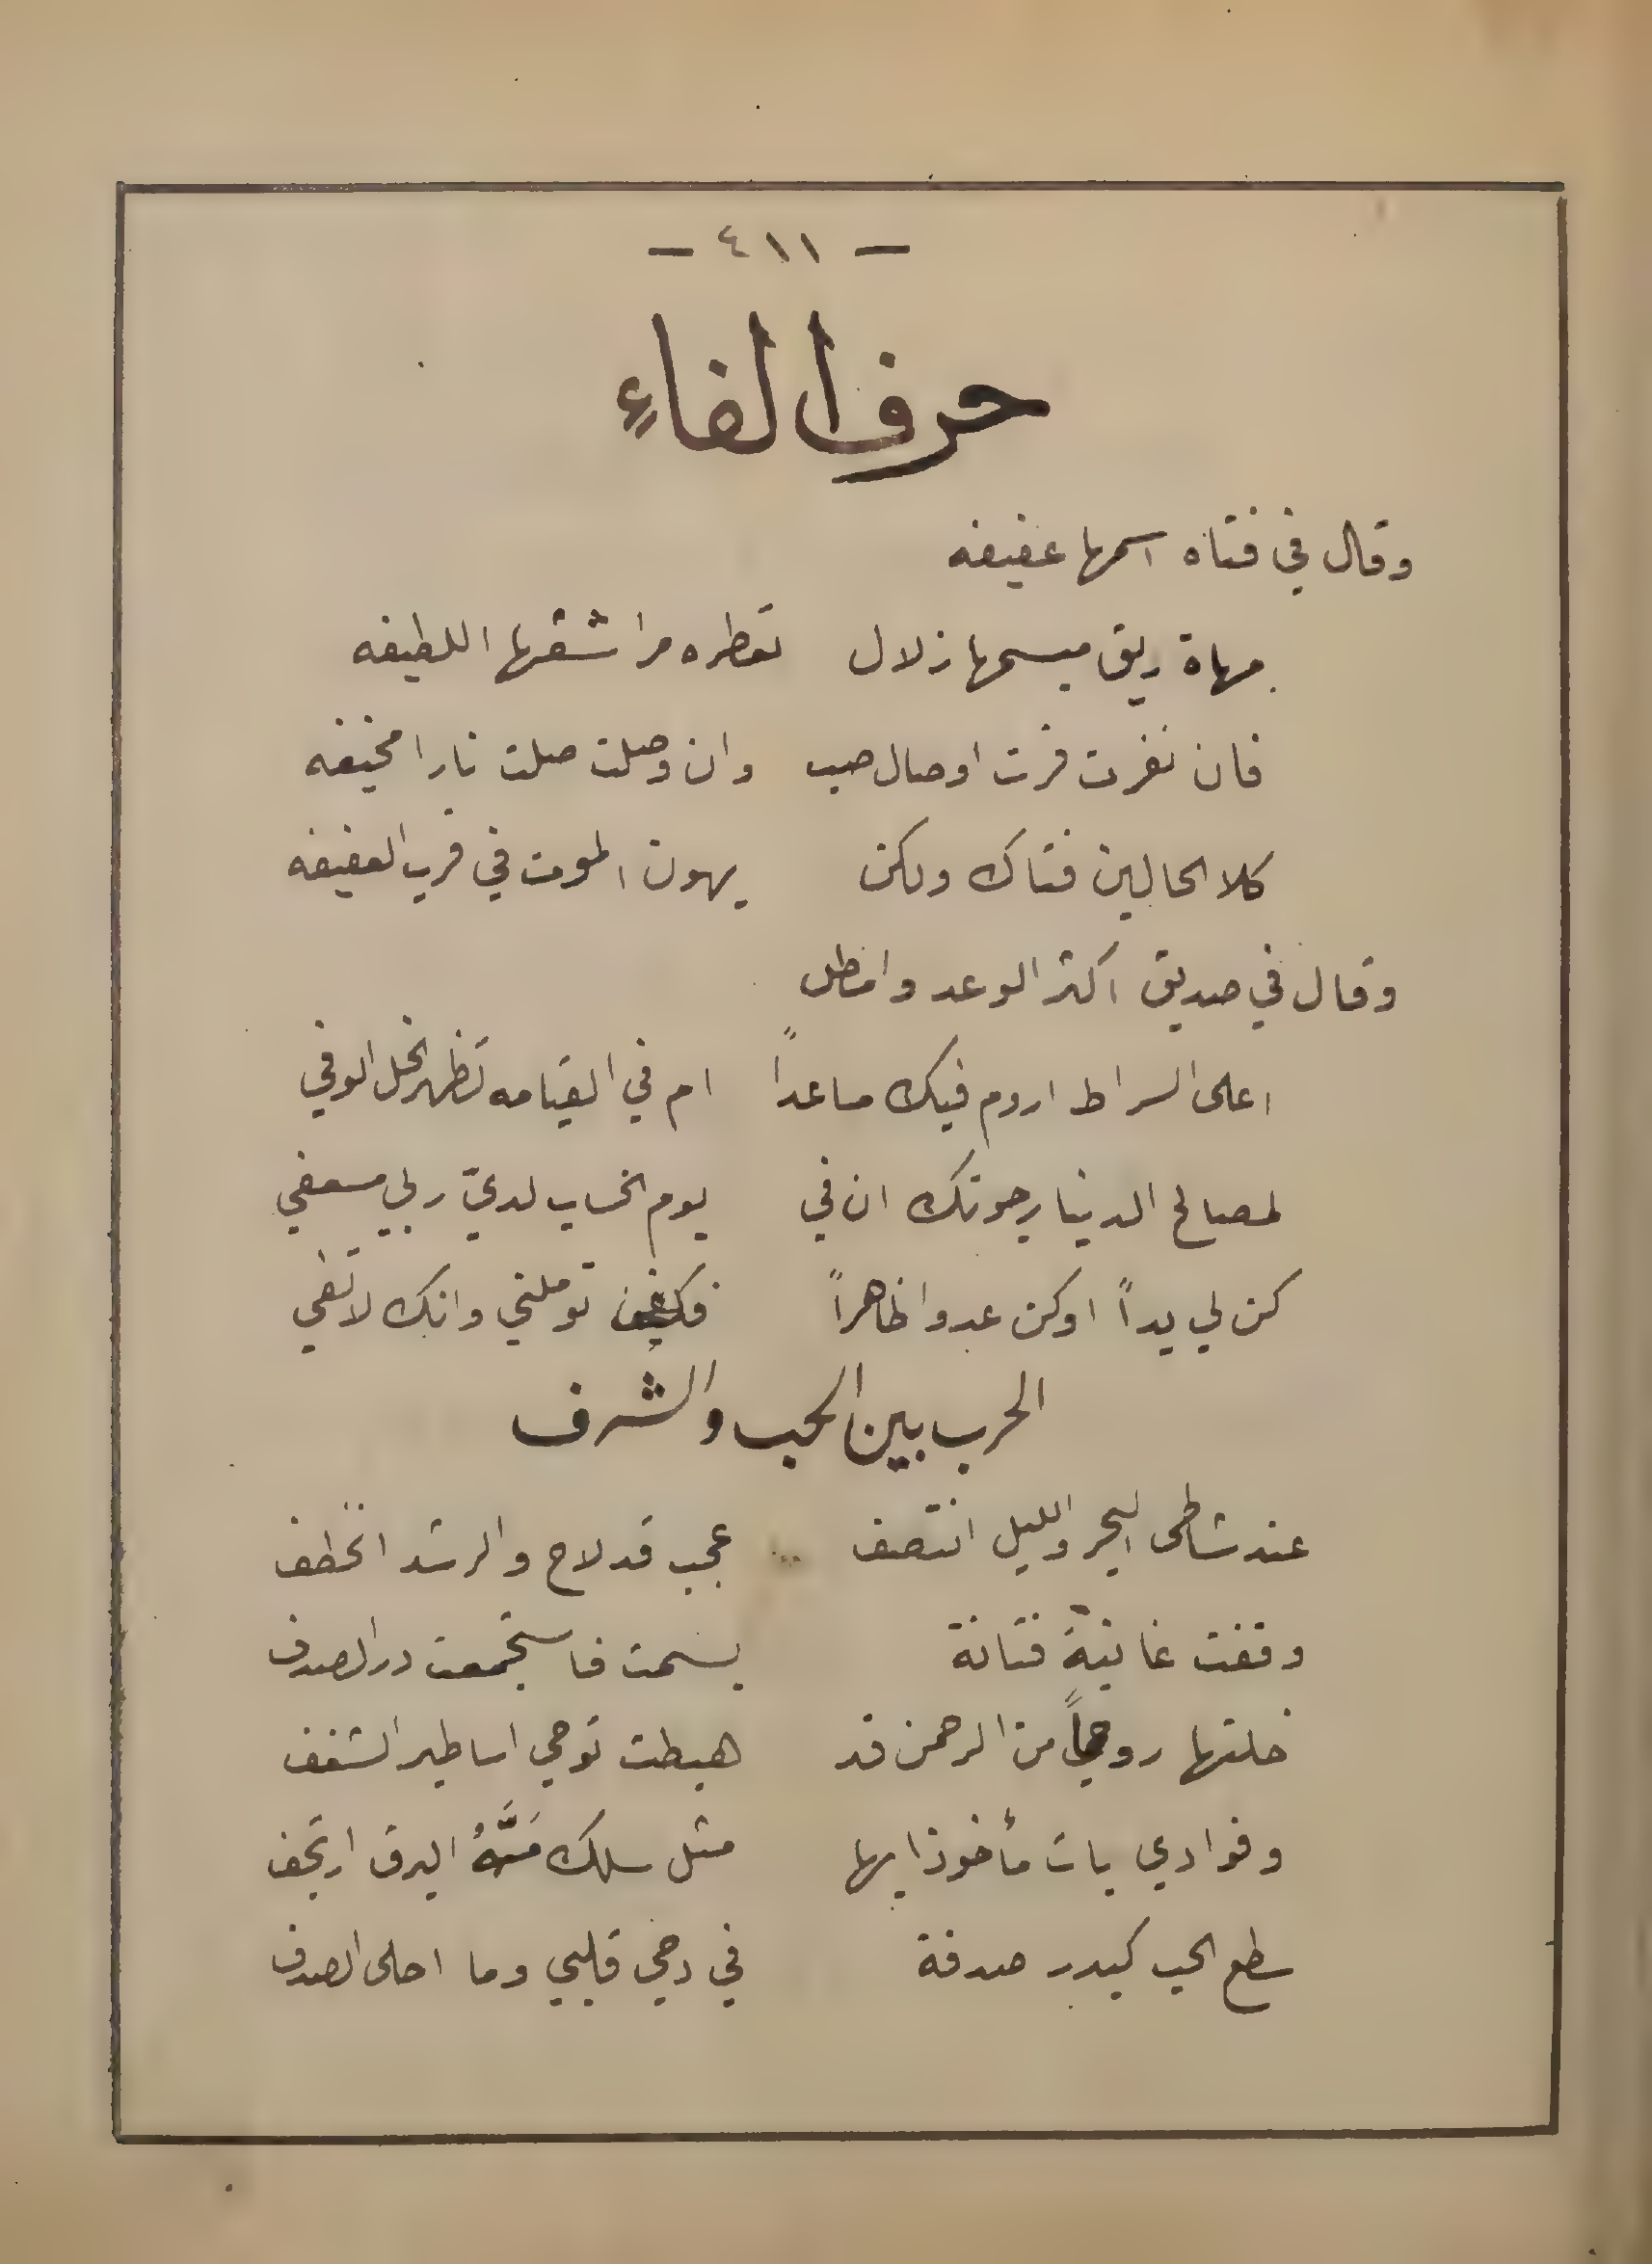 — ٤١١ —
حرف الفاء
وقال في فتاه اسمها عفيفه
مهاة ريق مبسمها زلال تعطره مراشفها اللطيفه
فان نفرت فرت اوصال صب وان وصلت صلت نارا مخيفه
كلا الحالين فتاك ولكن يهون الموت في قرب العفيفه
وقال في صديق اكثر الوعد وامطل
اعلى السراط اروم فيك مساعداً ام في القيامه تظهر الخل الوفي
لمصالح الدنيا رجوتك ان في يوم الحساب لديّ ربي مسعفي
كن لي يداً اوكن عدوا ظاهراً فكيف توملني وانك لا تفي
الحرب بين الحب والشرف
عند شاطى البحر والليل انتصف عجب قد لاح والرشد انخطف
وقفت غانيةٌ فتانة بسمت فاستجمعت در الصدف
خلتها روحاً من الرحمن قد هبطت توحي اساطير الشغف
وفوادي بات مأخوذا بها مثل سلك مَسَّهُ البرق ارتجف
سطع الحب كبدر صدفة في دجى قلبي وما احلى الصدف